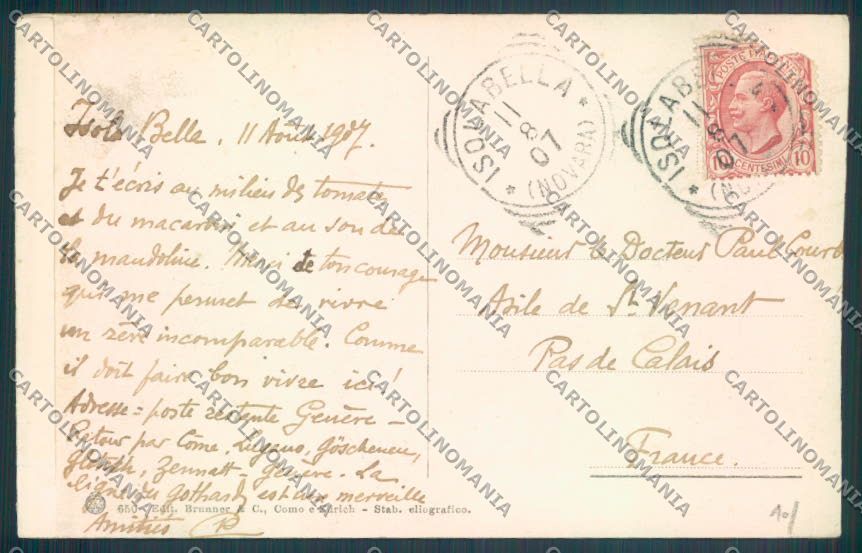 Isola Bella, 11 Août 1907.
Je t'écris au milieu des tomates
et du macaroni et au son de
la mandoline. Merci de ton courage
qui me permet de vivre
un rêve incomparable. Comme
il doit faire bon vivre ici!
Adresse = poste restante Genève -
Retour par Côme, Lugano, Göschenen,
Zermatt - Genève. La
ligne du Gothard est une merveille
Amitiés
650 - Edit. Brunner & C., Como e Zürich - Stab. eliografico.
ISOLABELLA
(NOVARA)
11
8
07
ISOLABELLA
11
8
07
POSTE
10 CENTESIMI 10
Monsieur le Docteur Paul
Asile de St Venant
Pas de Calais
France.
CARTOLINOMANIA